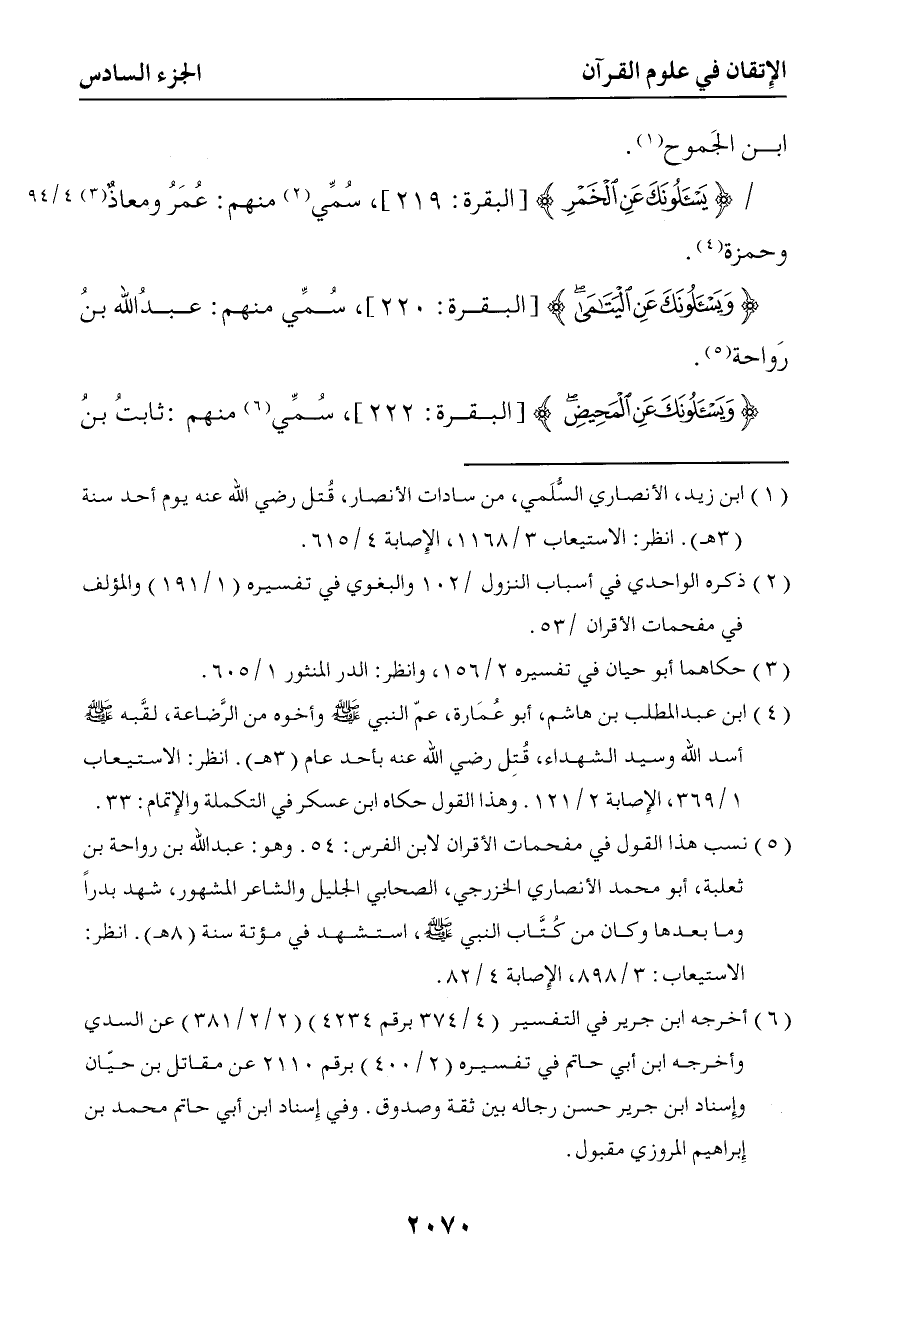 الإتقان في علوم القرآن الجزء السادس
ابن الجَموح(١).
/ ﴿ يَسْـَٔلُونَكَ عَنِ ٱلْخَمْرِ ﴾ [البقرة: ٢١٩]، سُمِّي(٢) منهم: عُمَرُ ومعاذٌ(٣) ٩٤/٤
وحمزة(٤).
﴿ وَيَسْـَٔلُونَكَ عَنِ ٱلْيَتَـٰمَىٰ ۖ ﴾ [البقرة: ٢٢٠]، سُمِّي منهم: عبدُالله بنُ
رَواحة(٥).
﴿ وَيَسْـَٔلُونَكَ عَنِ ٱلْمَحِيضِ ۖ ﴾ [البقرة: ٢٢٢]، سُمِّي(٦) منهم :ثابتُ بنُ
(١) ابن زيد، الأنصاري السُّلَمي، من سادات الأنصار، قُتل رضي الله عنه يوم أحد سنة
(٣هـ). انظر: الاستيعاب ٣/ ١١٦٨، الإصابة ٤/ ٦١٥.
(٢) ذكره الواحدي في أسباب النزول /١٠٢ والبغوي في تفسيره (١/ ١٩١) والمؤلف
في مفحمات الأقران /٥٣.
(٣) حكاهما أبو حيان في تفسيره ٢/ ١٥٦، وانظر: الدر المنثور ١/ ٦٠٥.
(٤) ابن عبدالمطلب بن هاشم، أبو عُمَارة، عمّ النبي ﷺ وأخوه من الرَّضاعة، لقَّبه ﷺ
أسد الله وسيد الشهداء، قُتِل رضي الله عنه بأحد عام (٣هـ). انظر: الاستيعاب
١/ ٣٦٩، الإصابة ٢/ ١٢١. وهذا القول حكاه ابن عسكر في التكملة والإتمام: ٣٣.
(٥) نسب هذا القول في مفحمات الأقران لابن الفرس: ٥٤. وهو: عبدالله بن رواحة بن
ثعلبة، أبو محمد الأنصاري الخزرجي، الصحابي الجليل والشاعر المشهور، شهد بدراً
وما بعدها وكان من كُتَّاب النبي ﷺ، استشهد في مؤتة سنة (٨هـ). انظر:
الاستيعاب: ٣/ ٨٩٨، الإصابة ٤/ ٨٢.
(٦) أخرجه ابن جرير في التفسير (٤/ ٣٧٤ برقم ٤٢٣٤) (٢/ ٢/ ٣٨١) عن السدي
وأخرجه ابن أبي حاتم في تفسيره (٢/ ٤٠٠) برقم ٢١١٠ عن مقاتل بن حيّان
وإسناد ابن جرير حسن رجاله بين ثقة وصدوق. وفي إسناد ابن أبي حاتم محمد بن
إبراهيم المروزي مقبول.
٢٠٧٠